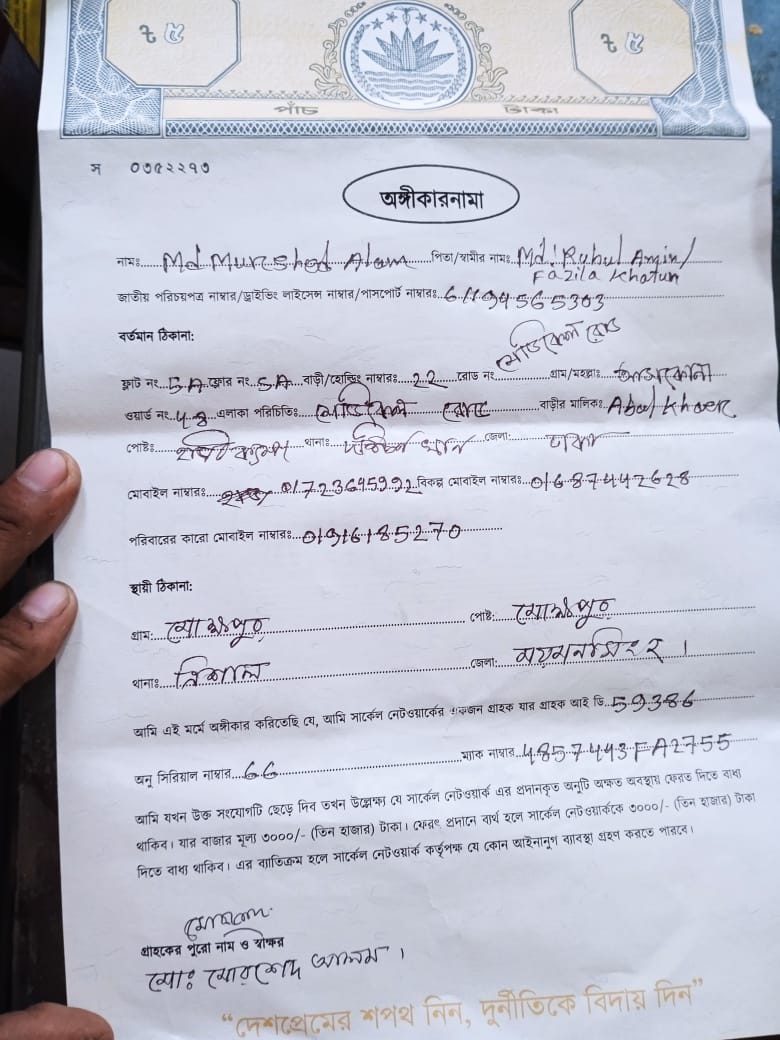 ৳ ৫ ৳ ৫
পাঁচ টাকা
স ০৩৫২২১৩
অঙ্গীকারনামা
নামঃ Md Murshed Alam পিতা/স্বামীর নামঃ Md: Ruhul Amin/
Fazila Khatun
জাতীয় পরিচয়পত্র নাম্বার/ড্রাইভিং লাইসেন্স নাম্বার/পাসপোর্ট নাম্বারঃ 61194565303
বর্তমান ঠিকানা:
ফ্লাট নং 5A ফ্লোর নং 5A বাড়ী/হোল্ডিং নাম্বারঃ 22 রোড নং মেডিকেল রোড গ্রাম/মহল্লাঃ আশকোনা
ওয়ার্ড নং 48 এলাকা পরিচিতিঃ মেডিকেল রোড বাড়ীর মালিকঃ Abul Khaer
পোষ্টঃ থানাঃ দক্ষিন খান জেলা: ঢাকা
মোবাইল নাম্বারঃ 01723645992 বিকল্প মোবাইল নাম্বারঃ 01687442628
পরিবারের কারো মোবাইল নাম্বারঃ 01916185270
স্থায়ী ঠিকানা:
গ্রাম: পোষ্ট:
থানাঃ ত্রিশাল জেলা: ময়মনসিংহ।
আমি এই মর্মে অঙ্গীকার করিতেছি যে, আমি সার্কেল নেটওয়ার্কের একজন গ্রাহক যার গ্রাহক আই ডি 59386
অনু সিরিয়াল নাম্বার 66 ম্যাক নাম্বার 4857443FA2755
আমি যখন উক্ত সংযোগটি ছেড়ে দিব তখন উল্লেক্ষ্য যে সার্কেল নেটওয়ার্ক এর প্রদানকৃত অনুটি অক্ষত অবস্থায় ফেরত দিতে বাধ্য
থাকিব। যার বাজার মূল্য ৩০০০/- (তিন হাজার) টাকা। ফেরৎ প্রদানে ব্যর্থ হলে সার্কেল নেটওয়ার্ককে ৩০০০/- (তিন হাজার) টাকা
দিতে বাধ্য থাকিব। এর ব্যাতিক্রম হলে সার্কেল নেটওয়ার্ক কর্তৃপক্ষ যে কোন আইনানুগ ব্যাবস্থা গ্রহণ করতে পারবে।
মোরশেদ
গ্রাহকের পুরো নাম ও স্বাক্ষর
মোঃ মোরশেদ আলম।
“দেশপ্রেমের শপথ নিন, দুর্নীতিকে বিদায় দিন”